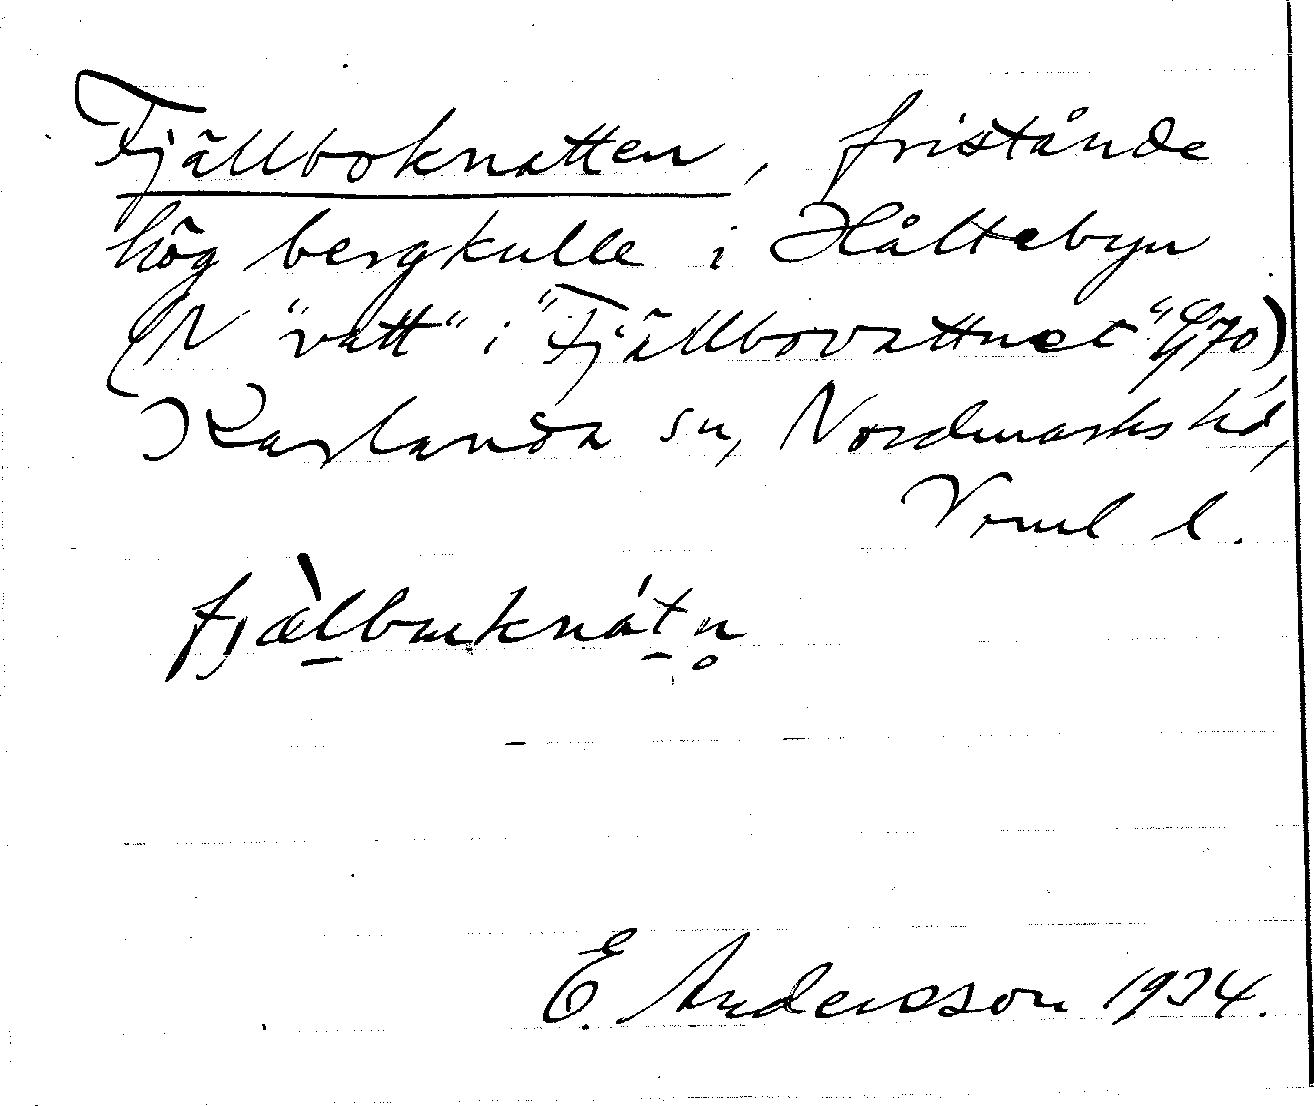 Fjällboknatten, fristånde
hög bergkulle i Håltebyn
(N "vatt" i "Fjällbovattnet" G70)
Karlanda sn, Nordmarks hd,
Verml l.
fjæ̀lbɯknátn̥
E. Andersson 1934.